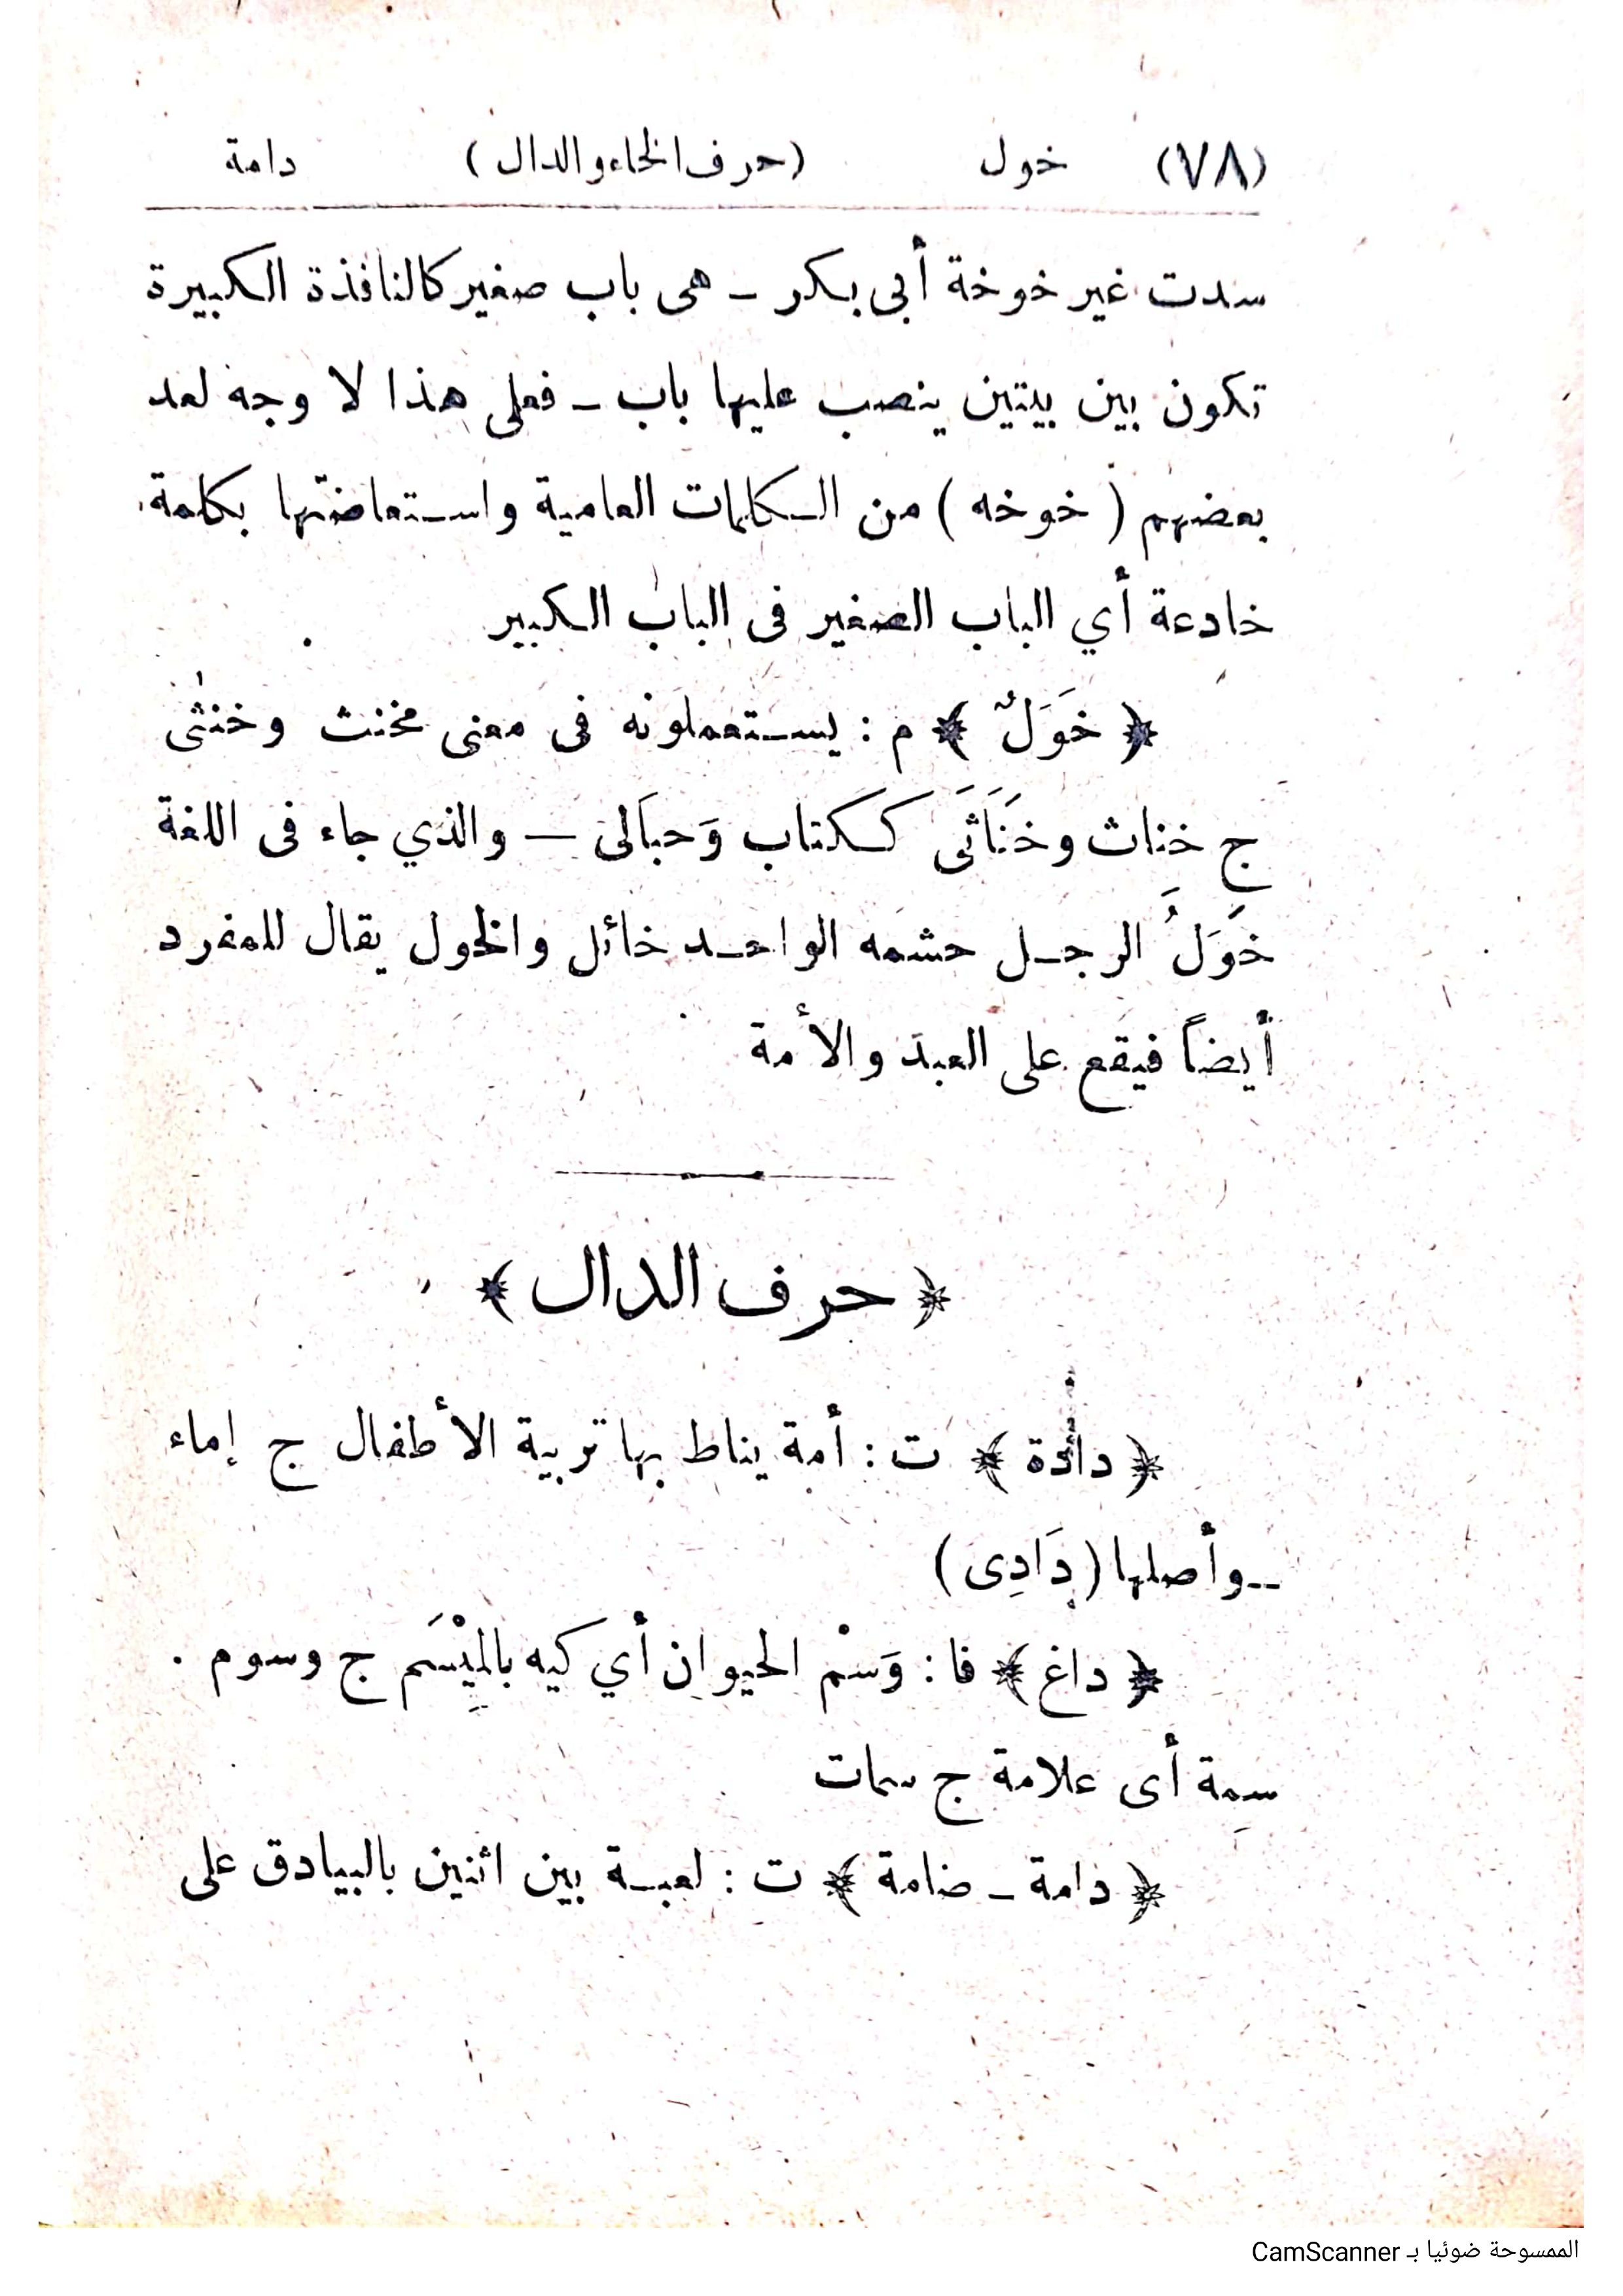 (٧٨) خول (حرف الخاء والدال) دامة
سدت غير خوخة أبى بكر ــ هى باب صغير كالنافذة الكبيرة
تكون بين بيتين ينصب عليها باب ــ فعلى هذا لا وجه لعد
بعضهم ( خوخه ) من الكلمات العامية واستعاضتها بكلمة
خادعة أي الباب الصغير فى الباب الكبير
﴿ خَوَلٌ ﴾ م : يستعملونه فى معنى مخنث وخنثى
ج خناث وخَنَاثَى ككتاب وَحبَالى — والذي جاء فى اللغة
خَوَلُ الرجل حشمه الواحد خائل والخول يقال للمفرد
أيضاً فيقع على العبد والأمة
﴿ حرف الدال ﴾
﴿ دادة ﴾ ت : أمة يناط بها تربية الأطفال ج إماء
ــ وأصلها ( دَادِى )
﴿ داغ ﴾ فا : وَسْم الحيوان أي كيه بالمِيْسَم ج وسوم .
سِمة أى علامة ج سمات
﴿ دامة ــ ضامة ﴾ ت : لعبة بين اثنين بالبيادق على
الممسوحة ضوئيا بـ CamScanner